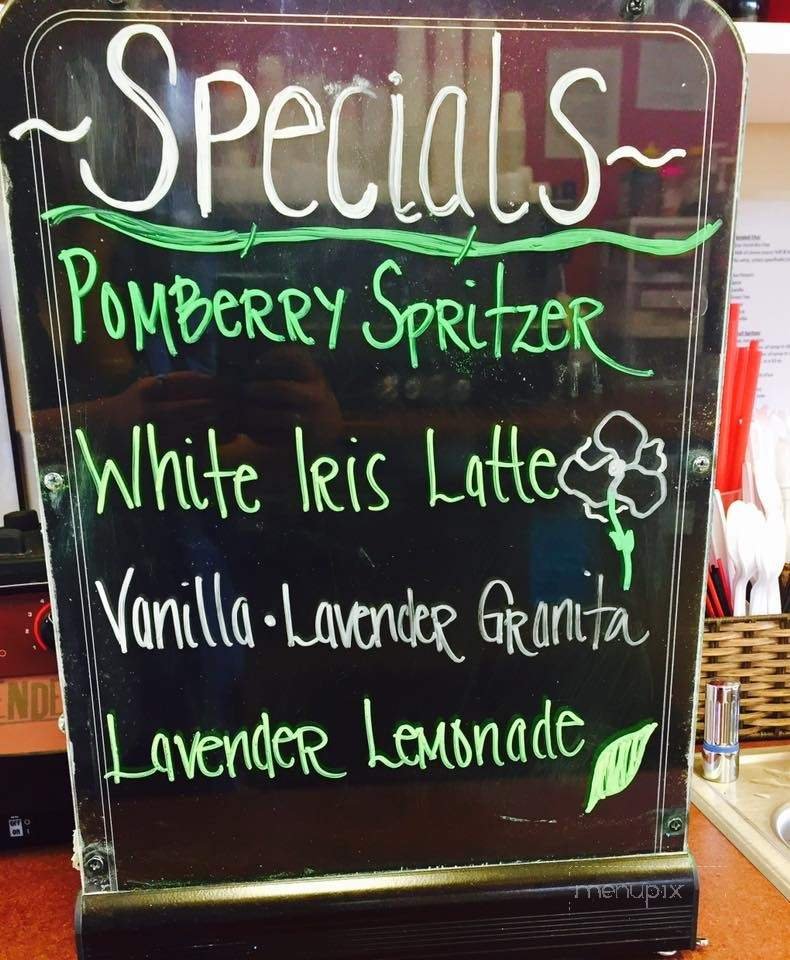 ~Specials~
Pomberry Spritzer
White Iris Latte
Vanilla • Lavender Granita
Lavender Lemonade
menupix
OFF
ON